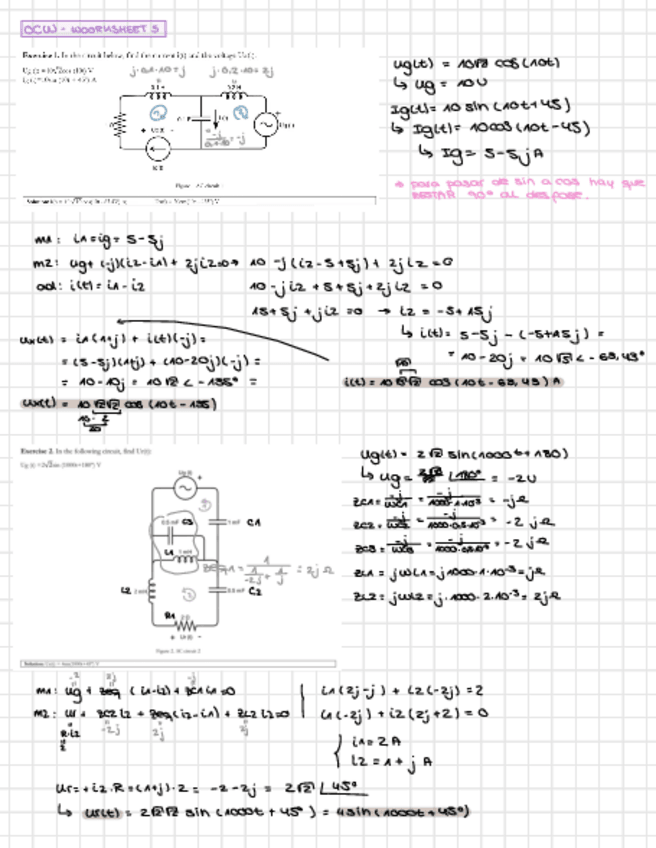 OCW - WOORKSHEET 5
Exercise 1. In the circuit below, find the current i(t) and the voltage Ux(t).
j·0.1·10=j
j·0.2·10=2j
ug(t) = 10√2 cos(10t)
↳ ug = 10V
Ig(t) = 10 sin(10t+45)
↳ Ig(t) = 10cos(10t-45)
↳ Ig = 5-5j A
* para pasar de sin a cos hay que
RESTAR 90° al desfase.
m1: i1=ig= 5-5j
m2: ug+(-j)(i2-i1)+2ji2=0 → 10-j(i2-5+5j)+2ji2=0
i(t)= i1-i2
10-ji2+5+5j+2ji2=0
15+5j+ji2=0 → i2=-5+15j
↳ i(t)= 5-5j-(-5+15j) =
= 10-20j = 10√5 < -63,43°
i(t) = 10√5√2 cos(10t-63,43) A
ux(t) = i1(1+j) + i(t)(-j) =
= (5-5j)(1+j) + (10-20j)(-j) =
= 10-10j = 10√2 < -135° =
ux(t) = 10√2√2 cos(10t-135)
10·2
20
Exercise 2. In the following circuit, find Ur(t):
Ug(t) = 2√2 sin(1000t+180°) V
C3
C1
L1
L2
C2
R1
Figure 2. AC circuit 2
ug(t) = 2√2 sin(1000t+180)
= -2V
ZC1 = -j/ωC1 = -j/1000·1·10⁻³ = -jΩ
ZC2 = -j/ωC2 = -j/1000·0.5·10⁻³ = -2jΩ
ZC3 = -j/ωC3 = -j/1000·0.5·10⁻³ = -2jΩ
ZL1 = jωL1=j1000·1·10⁻³=jΩ
ZL2 = jωL2=j·1000·2·10⁻³=2jΩ
m1: ug + zeq (i1-i2)+zc1i1=0
m2: ur + zc2i2 + zeq(i2-i1) + zL2i2=0
i1(2j-j) + i2(-2j) =2
i1(-2j) + i2(2j+2) = 0
i1=2A
i2=1+j A
ur=+i2.R=(1+j)·2= -2-2j = 2√2 |45°
↳ ur(t) = 2√2√2 sin(1000t+45°) = 4sin(1000t+45°)